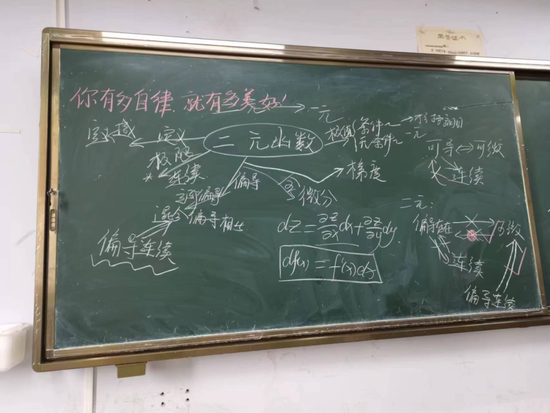 你有多自律,就有多美好!
一元
定义域
定义
二元函数
极限
条件~
无条件~
一元
可导⇔可微
连续
极限
连续
偏导
全微分
梯度
偏导连续
dz=∂z/∂x dx+∂z/∂y dy
df(x)=f'(x)dx
二元:
偏导存在
可微
连续
偏导连续